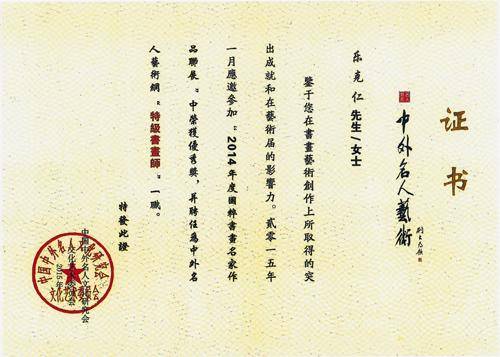 证书
中外名人藝術
乐克仁 先生/女士
鉴于您在書畫藝術創作上所取得的突
出成就和在藝術届的影響力。貳零一五年
一月應邀参加“2014年度國粹書畫名家作
品聯展”中榮獲優秀獎，昇聘任為中外名
人藝術網“特級書畫師”一職。
特發此證
中国中外名人文化研究会
文化艺术委员会
2015年